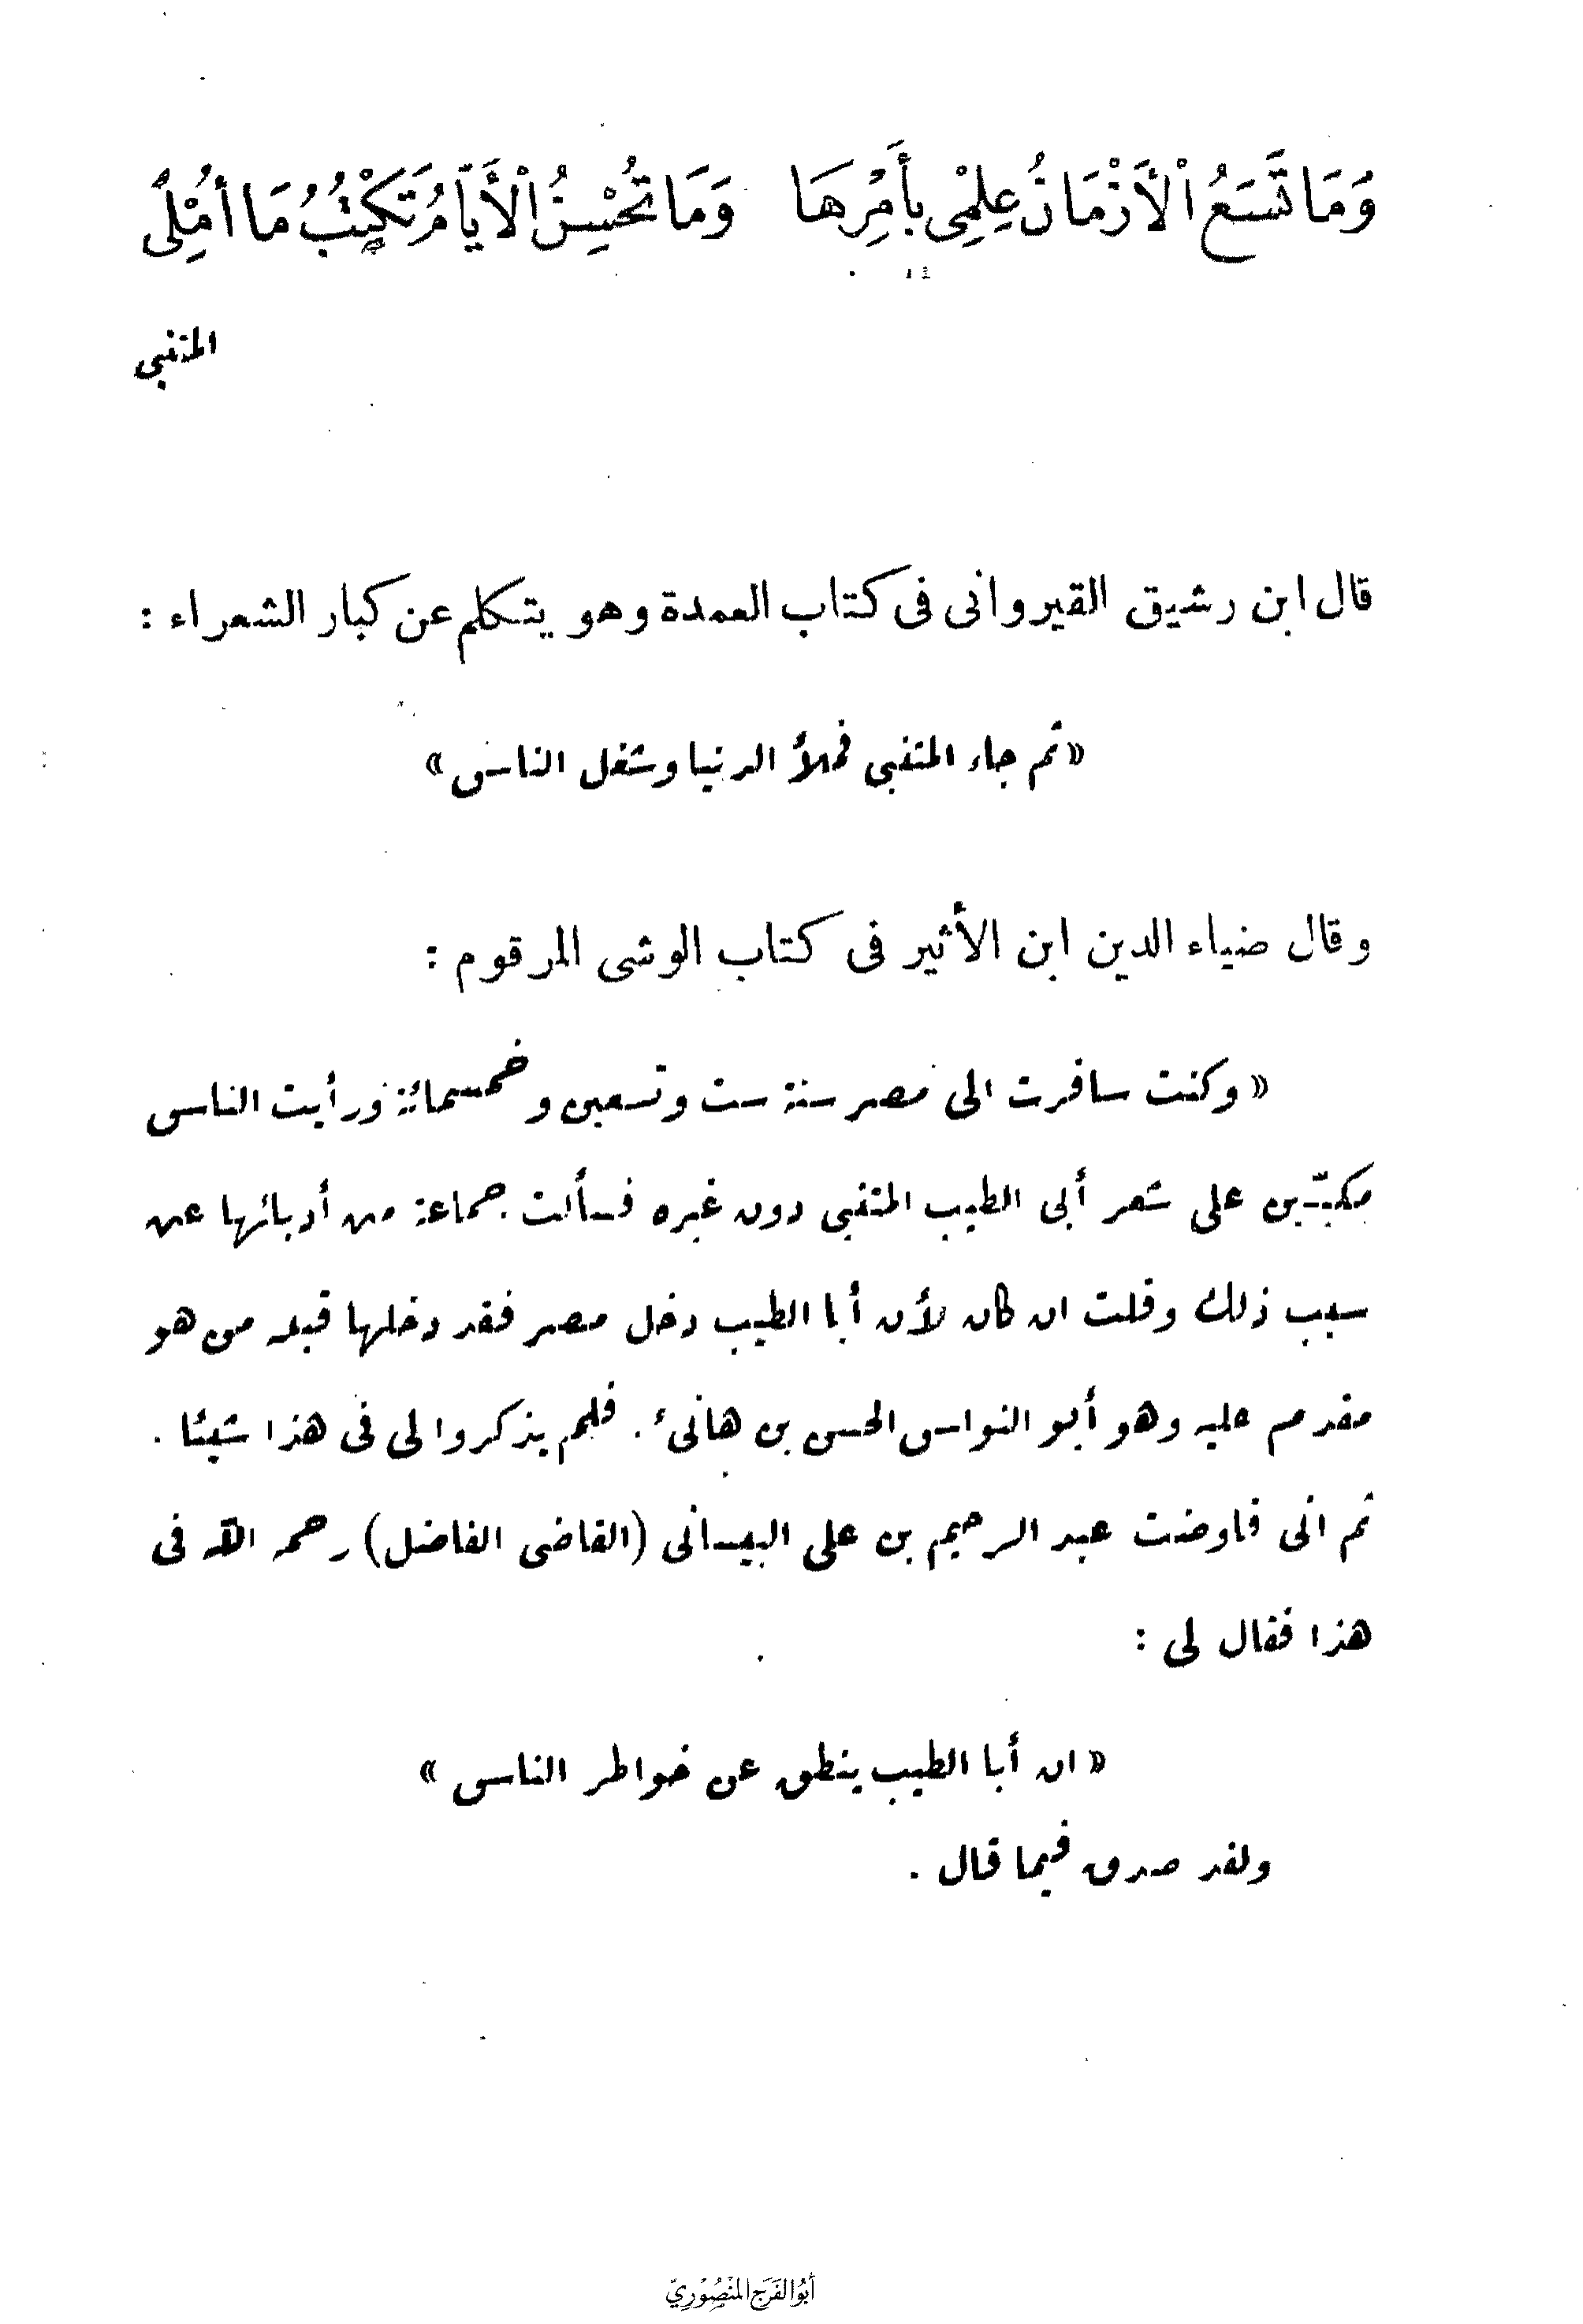 وَمَا تَسَعُ اْلأَزْمَانُ عِلْمِى بأَمْرِهَا   وَمَا تُحْسِنُ اْلأَيَّامُ تَكْتُبُ مَا أُمْلِى
المتنبى
قال ابن رشيق القيروانى فى كتاب العمدة وهو يتكلم عن كبار الشعراء :
« ثم جاء المتنبى فملأ الدنيا وشغل الناس »
وقال ضياء الدين ابن الأثير فى كتاب الوشى المرقوم :
« وكنت سافرت الى مصر سنة ست وتسعين وخمسمائة ورأيت الناس
مكبّين على شعر أبى الطيب المتنبى دون غيره فسألت جماعة من أدبائها عن
سبب ذلك وقلت ان كان لأن أبا الطيب دخل مصر فقد دخلها قبله من هو
مقدم عليه وهو أبو النواس الحسن بن هانىء . فلم يذكروا لى فى هذا شيئا .
ثم انى فاوضت عبد الرحيم بن على البيسانى (القاضى الفاضل) رحمه الله فى
هذا فقال لى :
« ان أبا الطيب ينطق عن خواطر الناس »
ولقد صدق فيما قال .
أبُو الفَرَج المَنْصُوْرِيّ